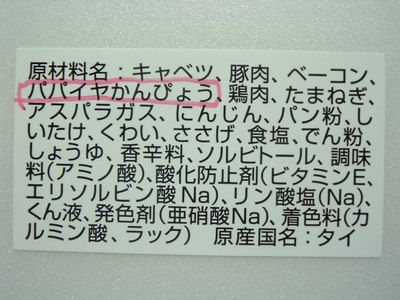 原材料名：キャベツ、豚肉、ベーコン、
パパイヤかんぴょう、鶏肉、たまねぎ、
アスパラガス、にんじん、パン粉、し
いたけ、くわい、ささげ、食塩、でん粉、
しょうゆ、香辛料、ソルビトール、調味
料(アミノ酸)、酸化防止剤(ビタミンE、
エリソルビン酸Na)、リン酸塩(Na)、
くん液、発色剤(亜硝酸Na)、着色料(カ
ルミン酸、ラック)　原産国名：タイ